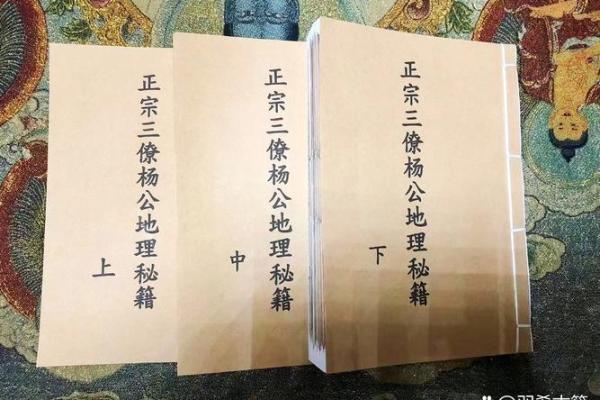 正宗三僚杨公地理秘籍
上
正宗三僚杨公地理秘籍
中
正宗三僚杨公地理秘籍
下